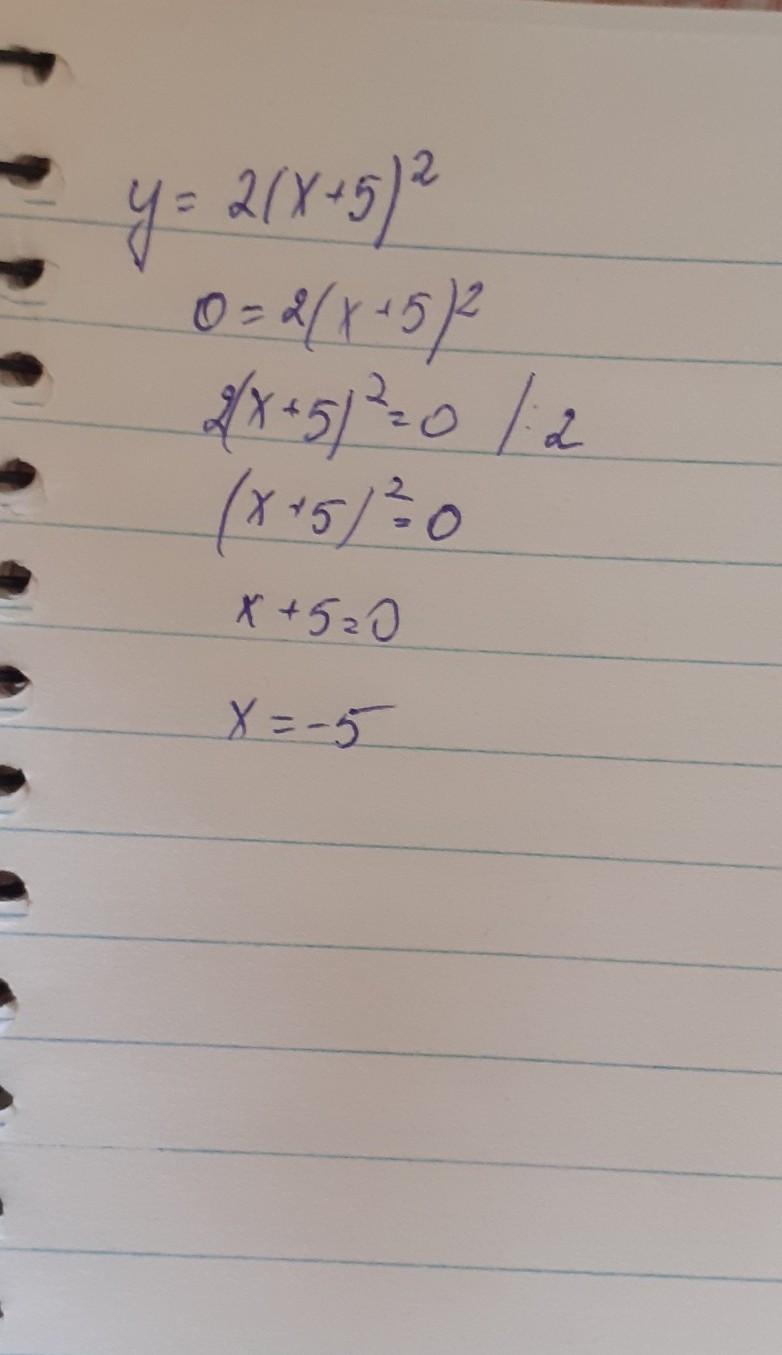 y = 2(x+5)²
0 = 2(x+5)²
2(x+5)² = 0 /:2
(x+5)² = 0
x+5=0
x = -5